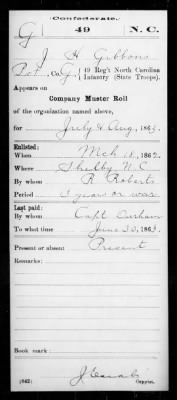 Confederate.
G 49 N. C.
J H Gibbons
Pvt, Co. G, 49 Reg't North Carolina
Infantry (State Troops).
Appears on
Company Muster Roll
of the organization named above,
for July & Aug, 1863.
Enlisted:
When Mch 18, 1862
Where Shelby N.C.
By whom R Roberts
Period 3 years or war
Last paid:
By whom Capt Durham
To what time June 30, 1863
Present or absent Present
Remarks:
Book mark:
(642)
Copyist.